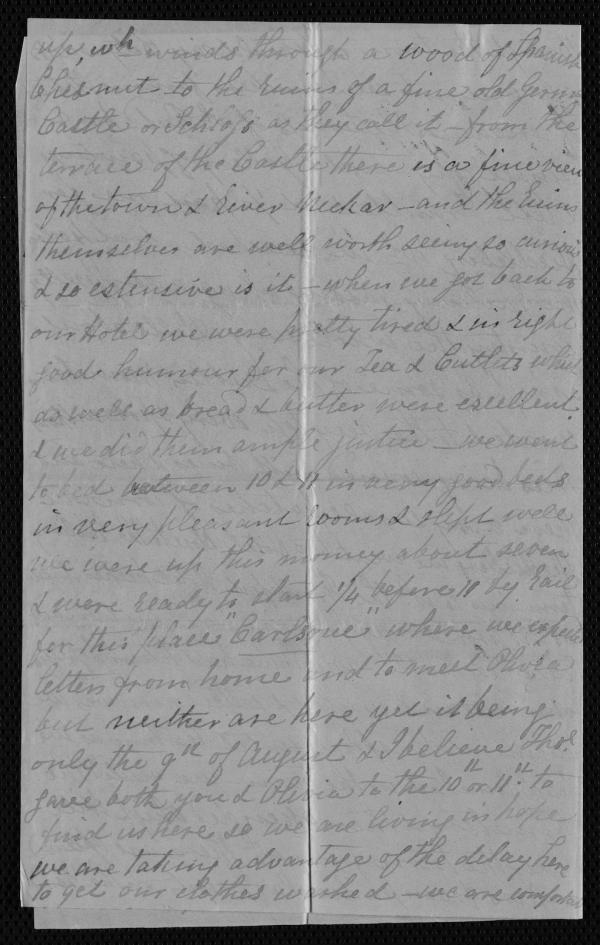 up, wh winds through a wood of Spanish
Chesnut to the ruins of a fine old German
Castle or Schloss as they call it – from the
terrace of the Castle there is a fine view
of the town & River Neckar – and the Ruins
themselves are well worth seeing so curious
& so extensive is it – when we got back to
our Hotel we were pretty tired & in right
good humour for our Tea & Cutlets which
as well as bread & butter were excellent
& we did them ample justice – we went
to bed between 10 & 11 in very good beds
in very pleasant rooms & slept well
we were up this morning about seven
& were ready to start 1/4 before 11 by Rail
for this place "Carlsrue" where we expected
letters from home and to meet Olivia
but neither are here yet it being
only the 9th of August & I believe Thos.
gave both you & Olivia to the 10th or 11th to
find us here so we are living in hope
we are taking advantage of the delay here
to get our clothes washed – we are